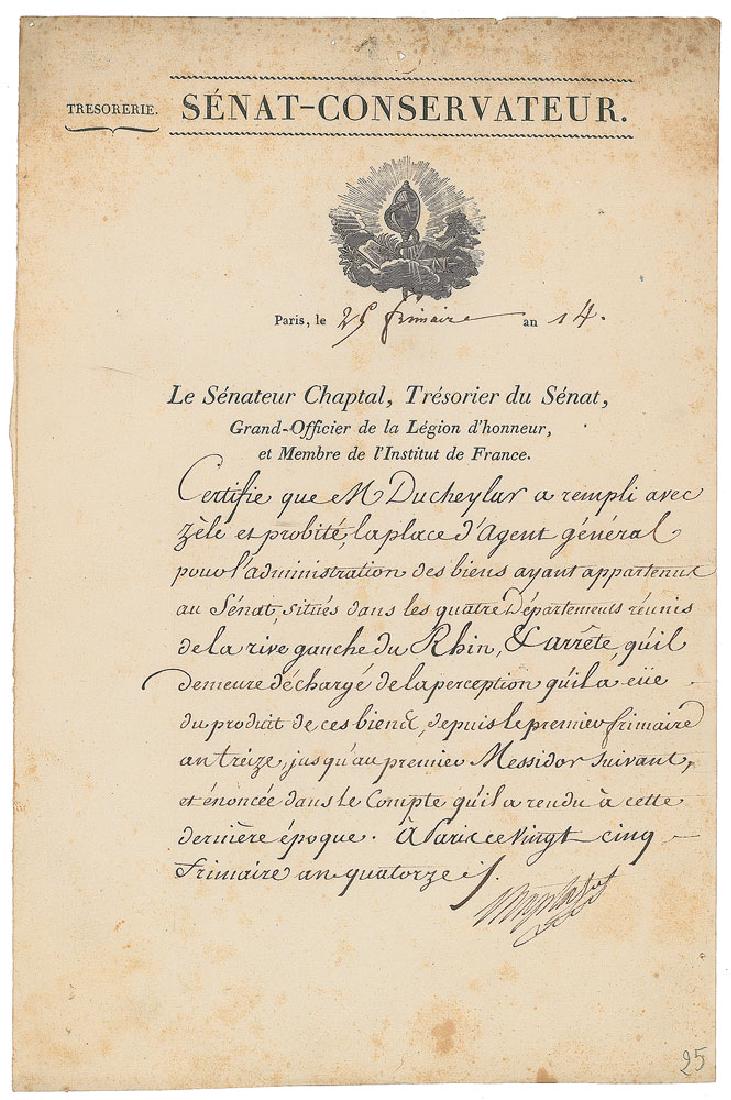 TRESORERIE. SÉNAT-CONSERVATEUR.
Paris, le 25 frimaire an 14.
Le Sénateur Chaptal, Trésorier du Sénat,
Grand-Officier de la Légion d'honneur,
et Membre de l'Institut de France.
Certifie que M Ducheylar a rempli avec
zèle et probité, la place d'Agent général
pour l'administration des biens ayant appartenus
au Sénat, situés dans les quatre Départements réunis
de la rive gauche du Rhin, & arrête, qu'il
demeure déchargé de la perception qu'il a eüe
du produit de ces biens, depuis le premier frimaire
an treize, jusqu'au premier Messidor suivant,
et énoncée dans le Compte qu'il a rendu à cette
dernière époque. À Paris ce Vingt-cinq
frimaire an quatorze
25